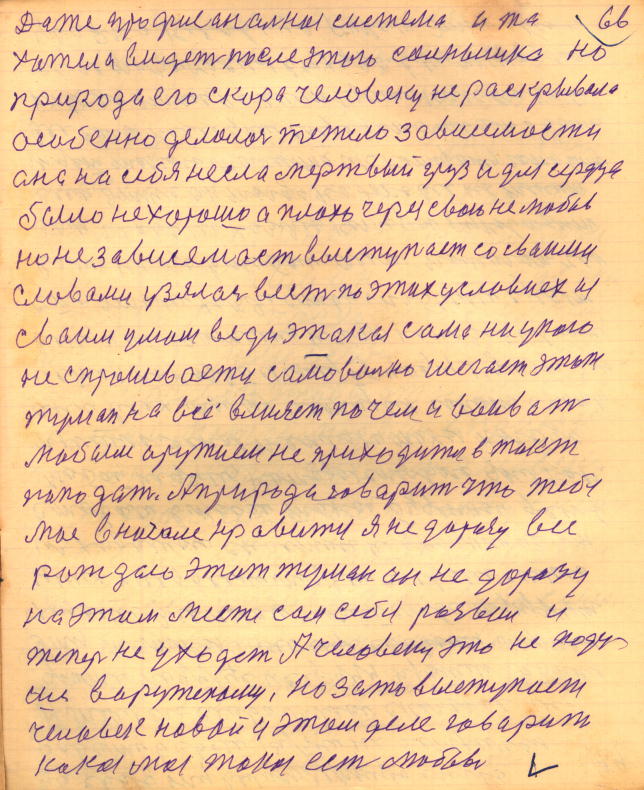 66
Даже профисианалная система и та
хотела видет после этого соннышка но
природа его скора человеку не раскрывала
особенно делолоч тежело зависемости
ана на себя несла мертвый груз и для сердца
было не хорошо а плохь через свою не любов
но не зависемаст выступает со своими
словами взялоч вест по этих условиех и
своим умом веду этакоя сама ни у кого
не спрошивает и самоволно шегает этот
туман на всё влияет почем и воиват
любым аружием не приходится в такт
поподат. А природа говарит что тебе
мое вначале нравитя я не дорозу все
рождаю этот туман он не дорозу
на этом месте сам себя развеи и
тепер не уходет А человеку это не
но зато выступает
человек новой и этом деле говарит
какоя моя такоя ест любовь